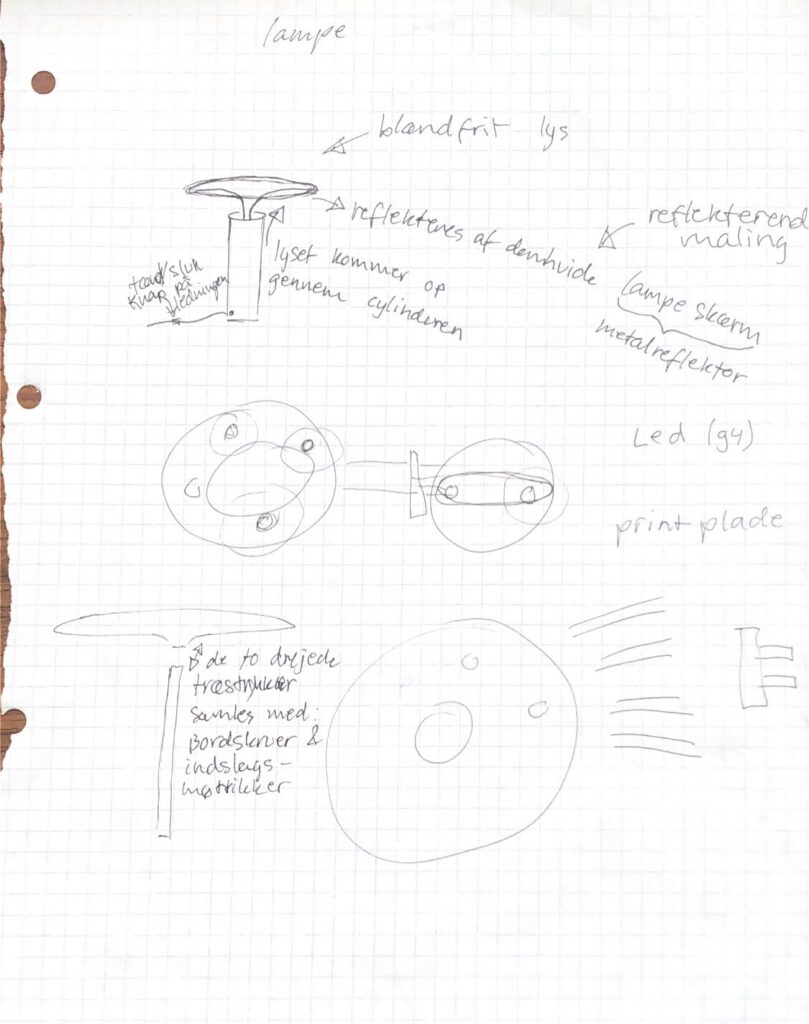 lampe
blændfrit lys
reflekteres af denhvide
reflekterend
maling
lyset kommer op
gennem cylinderen
tænd/sluk
knap på
ledningen
lampe skærm
metalreflektor
Led (g4)
print plade
de to drejede
træstykker
samles med:
Bordskruer &
indslags-
møtrikker